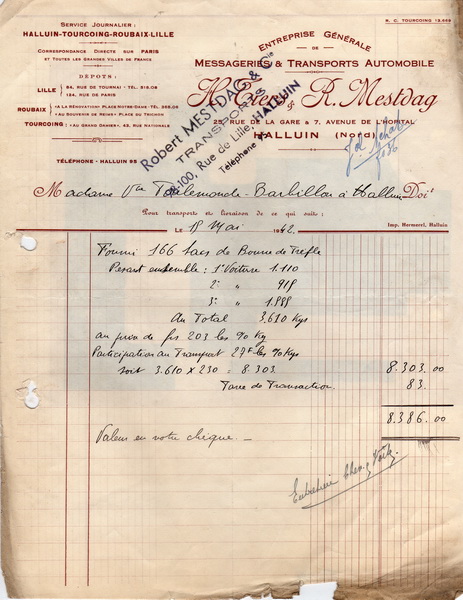 R. C. TOURCOING 13.659
SERVICE JOURNALIER :
HALLUIN-TOURCOING-ROUBAIX-LILLE
CORRESPONDANCE DIRECTE SUR PARIS
ET TOUTES LES GRANDES VILLES DE FRANCE
DÉPOTS :
LILLE 84, RUE DE TOURNAI - TÉL. 518.08
124, RUE DE PARIS
ROUBAIX A LA RÉNOVATION PLACE NOTRE-DAME - TÉL. 358.08
AU SOUVENIR DE REIMS - PLACE DU TRICHON
TOURCOING : AU GRAND DAMIER - 43, RUE NATIONALE
TÉLÉPHONE - HALLUIN 85
ENTREPRISE GÉNÉRALE
DE
MESSAGERIES & TRANSPORTS AUTOMOBILE
& R. Mestdag
25, RUE DE LA GARE & 7, AVENUE DE L'HOPITAL
HALLUIN (NORD)
Robert MESTDAG & Cie
TRANSPORTS
100, Rue de Lille, HALLUIN
Téléphone
Madame Vve Barbillon à Halluin Doit
Pour transports et livraison de ce qui suit :
LE 18 Mai 1942.
Imp. Hermorel, Halluin
Fourni 166 sacs de Bourre de Trèfle
Pesant ensemble : 1e Voiture 1.110
2e " 915
3e "
Au Total 3.610 Kgs
au prix de frs 203 les % Kg
Participation au Transport 27F les % Kgs
soit 3.610 x 230 = 8.303 8.303.00
Taxe de Transaction 83.
8.386.00
Valeur en votre chèque. —
Entretien